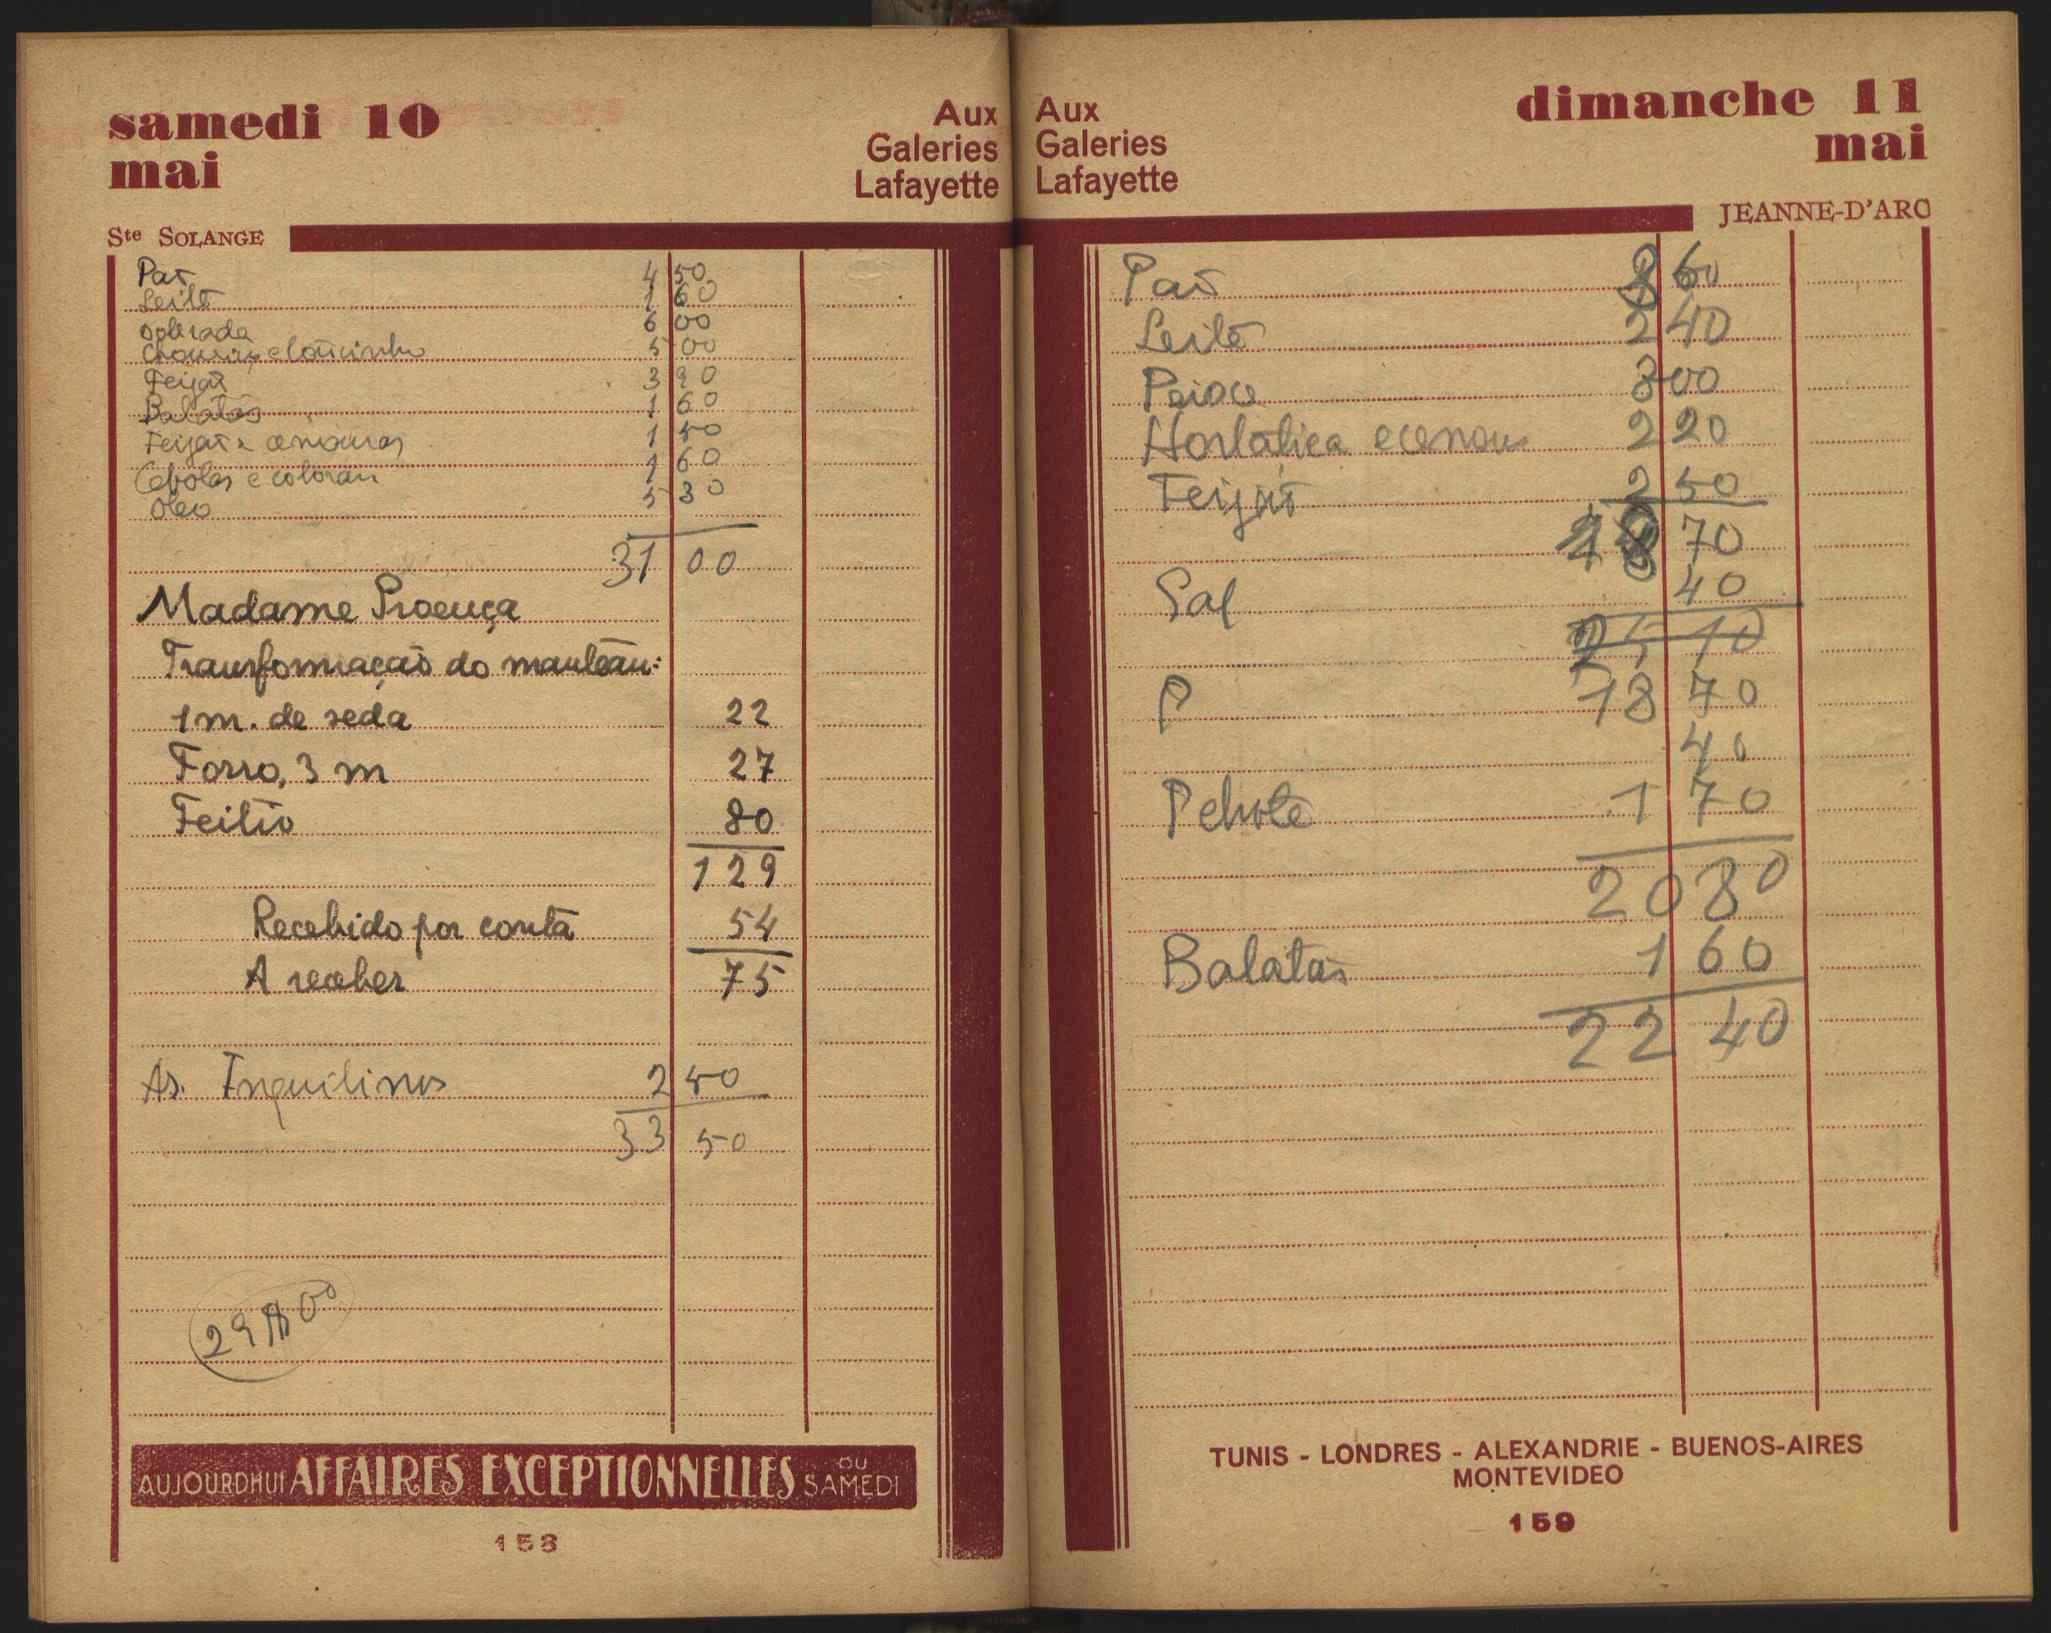 samedi 10
mai
Aux
Galeries
Lafayette
Ste SOLANGE
Pão 4 50
Leite 1 60
6 00
e toucinho 5 00
Feijão 3 90
Batatas 1 60
Feijão e cenouras 1 50
Cebolas e colorau 1 60
Oleo 5 30
31 00
Madame Proença
Transformação do manteau:
1 m. de seda 22
Forro, 3 m 27
Feitio 80
129
Recebido por conta 54
A receber 75
As. Inquilinos 2 50
33 50
29$00
AUJOURD'HUI AFFAIRES EXCEPTIONNELLES OU SAMEDI
158
Aux
Galeries
Lafayette
dimanche 11
mai
JEANNE-D'ARC
Pão 60
Leite 2 40
Peixe 8 00
Hortaliça e cenou 2 20
Feijão 2 50
18 70
Sal 40
21 10
P 18 70
40
1 70
20 80
Batatas 1 60
22 40
TUNIS - LONDRES - ALEXANDRIE - BUENOS-AIRES
MONTEVIDEO
159